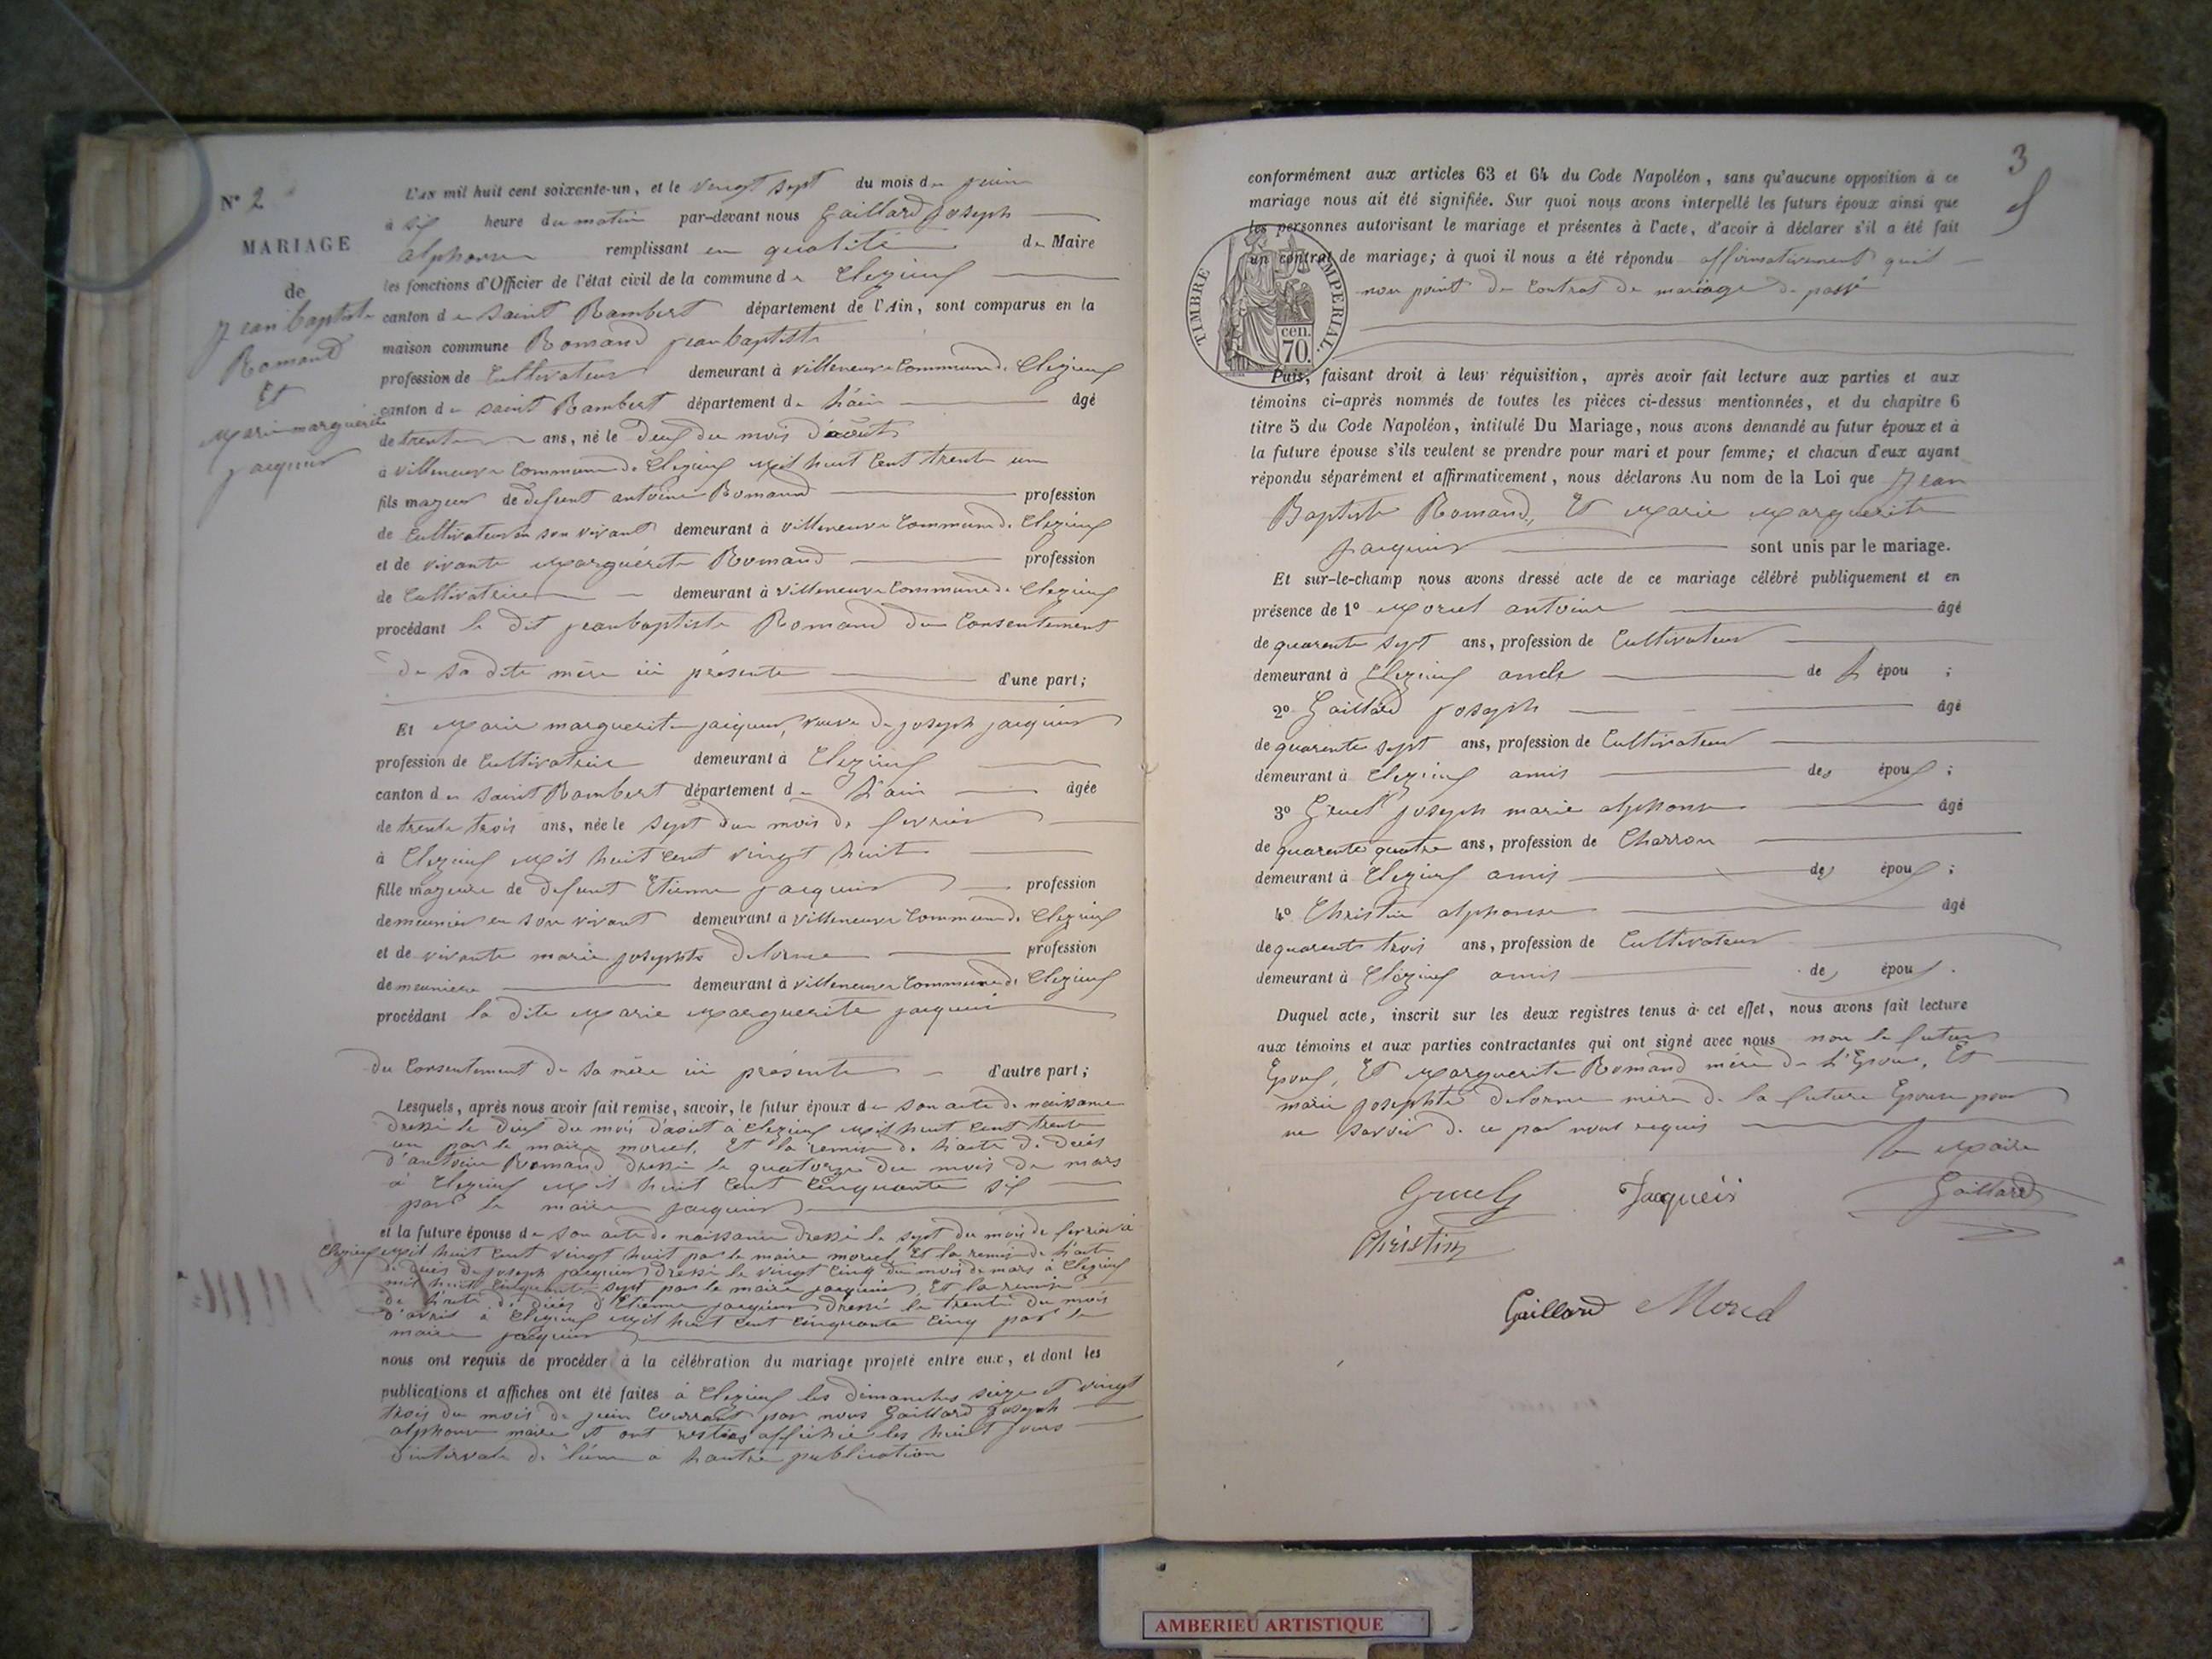 N° 2
MARIAGE
de
Jean baptiste
Romand
Et
Marie marguerite
jacquin
L'AN mil huit cent soixante-un, et le vingt sept du mois de juin
à six heure du matin par-devant nous Gaillard joseph
alphonse remplissant en qualité de Maire
les fonctions d'Officier de l'état civil de la commune de Clezieux
canton de saint Rambert département de l'Ain, sont comparus en la
maison commune Romand jean baptiste
profession de Cultivateur demeurant à villeneuve Commune de Clezieux
canton de saint Rambert département de l'ain âgé
de trente ans, né le deux du mois d'aout
à villeneuve Commune de Clezieux mil huit cent trente un
fils majeur de defunt antoine Romand profession
de Cultivateur en son vivant demeurant à villeneuve Commune de Clezieux
et de vivante Marguerite Romand profession
de Cultivatrice demeurant à villeneuve Commune de Clezieux
procédant le dit jean baptiste Romand du Consentement
de sa dite mère ici présente d'une part;
Et Marie marguerite jacquin, veuve de joseph jacquin
profession de Cultivatrice demeurant à Clezieux
canton de saint Rambert département de l'ain âgée
de trente trois ans, née le sept du mois de fevrier
à Clezieux mil huit cent vingt huit
fille majeure de defunt Etienne jacquin profession
de meunier en son vivant demeurant à villeneuve Commune de Clezieux
et de vivante marie josephte delorme profession
de meuniere demeurant à villeneuve Commune de Clezieux
procédant la dite Marie Marguerite jacquin
du Consentement de sa mère ici présente d'autre part;
Lesquels, après nous avoir fait remise, savoir, le futur époux de son acte de naissance
dressé le deux du mois d'aout à Clezieux mil huit cent trente
un par le maire moriel, Et la remise de l'acte de décès
d'antoine Romand dressé le quatorze du mois de mars
à Clezieux mil huit cent cinquante six
par le maire jacquin
et la future épouse de son acte de naissance dressé le sept du mois de fevrier à
Clezieux mil huit cent vingt huit par le maire moriel, Et la remise de l'acte
de décès de joseph jacquin dressé le vingt cinq du mois de mars à Clezieux
mil huit cinquante sept par le maire jacquin, Et la remise
de l'acte de décés d'Etienne jacquin dressé le trente du mois
d'avril à Clezieux mil huit cent cinquante cinq par le
maire jacquin
nous ont requis de procéder à la célébration du mariage projeté entre eux, et dont les
publications et affiches ont été faites à Clezieux les dimanches seize et vingt
trois du mois de juin Courrant par nous Gaillard joseph
alphonse maire et ont restées affiché les huit jours
d'intervale de l'une a l'autre publication
3
conformément aux articles 63 et 64 du Code Napoléon, sans qu'aucune opposition à ce
mariage nous ait été signifiée. Sur quoi nous avons interpellé les futurs époux ainsi que
les personnes autorisant le mariage et présentes à l'acte, d'avoir à déclarer s'il a été fait
un contrat de mariage; à quoi il nous a été répondu affirmativement quil
non point de Contrat de mariage de passé
TIMBRE IMPERIAL
cen.
70.
Puis, faisant droit à leur réquisition, après avoir fait lecture aux parties et aux
témoins ci-après nommés de toutes les pièces ci-dessus mentionnées, et du chapitre 6
titre 5 du Code Napoléon, intitulé Du Mariage, nous avons demandé au futur époux et à
la future épouse s'ils veulent se prendre pour mari et pour femme; et chacun d'eux ayant
répondu séparément et affirmativement, nous déclarons Au nom de la Loi que Jean
Baptiste Romand, Et Marie Marguerite
jacquin sont unis par le mariage.
Et sur-le-champ nous avons dressé acte de ce mariage célébré publiquement et en
présence de 1° Moriel antoine âgé
de quarente sept ans, profession de Cultivateur
demeurant à Clezieux oncle de l' épou ;
2° Gaillard joseph âgé
de quarente sept ans, profession de Cultivateur
demeurant à Clezieux amis des époux ;
3° Gruel joseph marie alphonse âgé
de quarente quatre ans, profession de Charron
demeurant à Clezieux amis des époux ;
4° Christin alphonse âgé
de quarente trois ans, profession de Cultivateur
demeurant à Clezieux amis des époux.
Duquel acte, inscrit sur les deux registres tenus à cet effet, nous avons fait lecture
aux témoins et aux parties contractantes qui ont signé avec nous non le futur
Epoux, Et Marguerite Romand mère de l'Epoux, Et
marie josephte delorme mère de la future Epouse pour
ne savoir de ce par nous requis
Le Maire
Gruel Jacquin Gaillard
Christin
Gaillard Moriel
AMBERIEU ARTISTIQUE